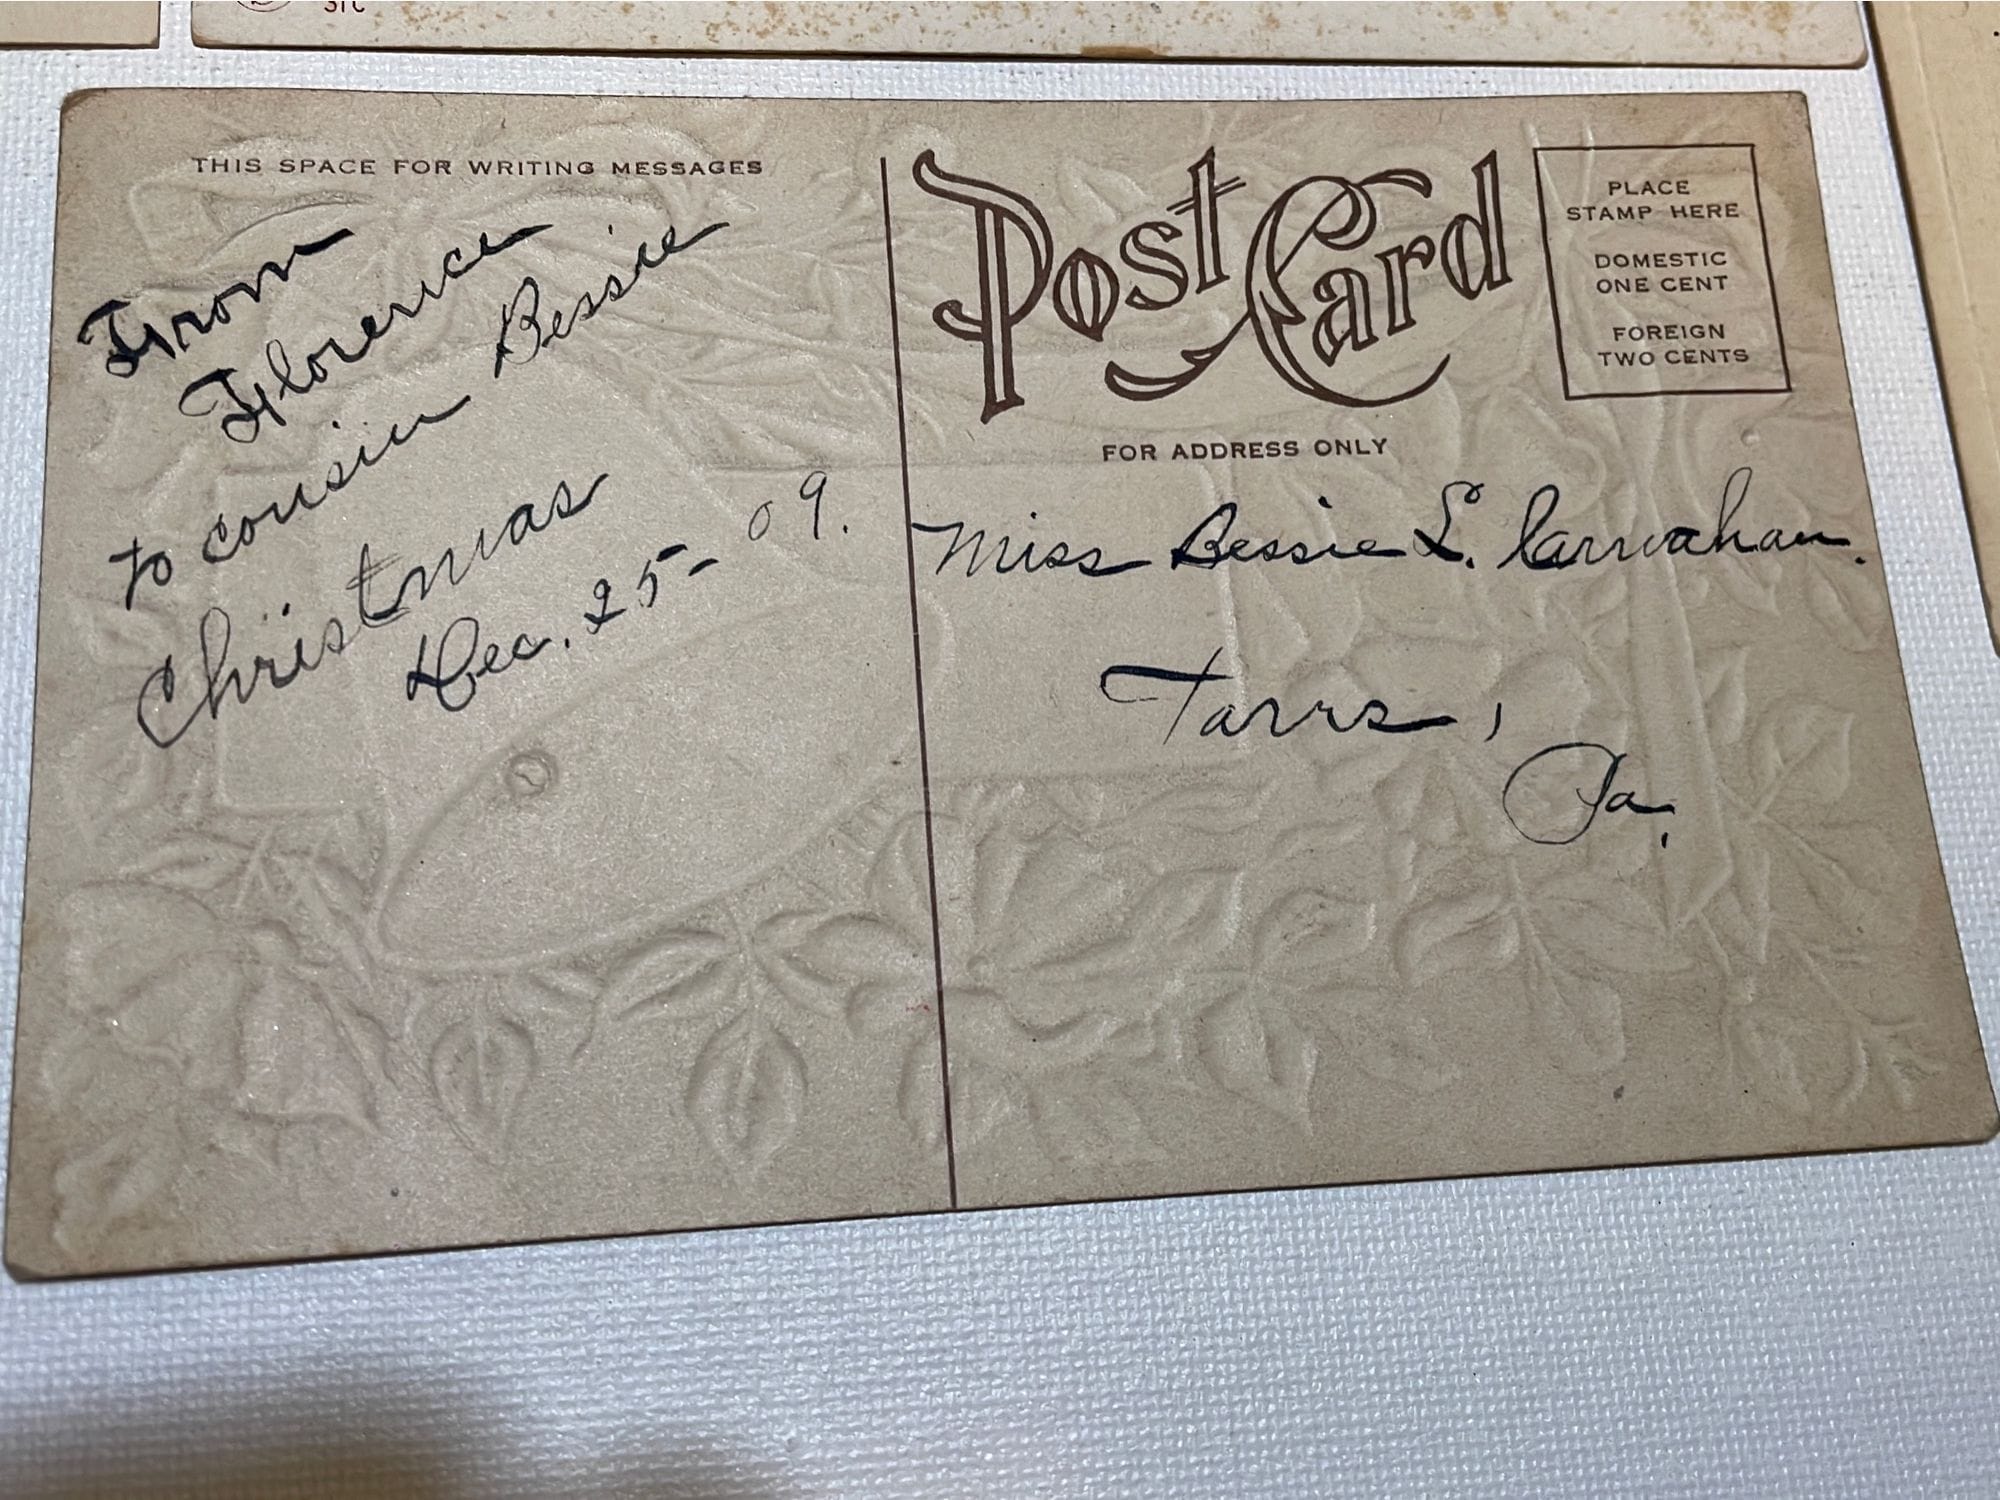 31C
THIS SPACE FOR WRITING MESSAGES
From
Florence
to cousin Bessie
Christmas
Dec. 25- 09.
Post Card
PLACE
STAMP HERE
DOMESTIC
ONE CENT
FOREIGN
TWO CENTS
FOR ADDRESS ONLY
Miss Bessie L. Carnahan.
Tarrs,
Pa.